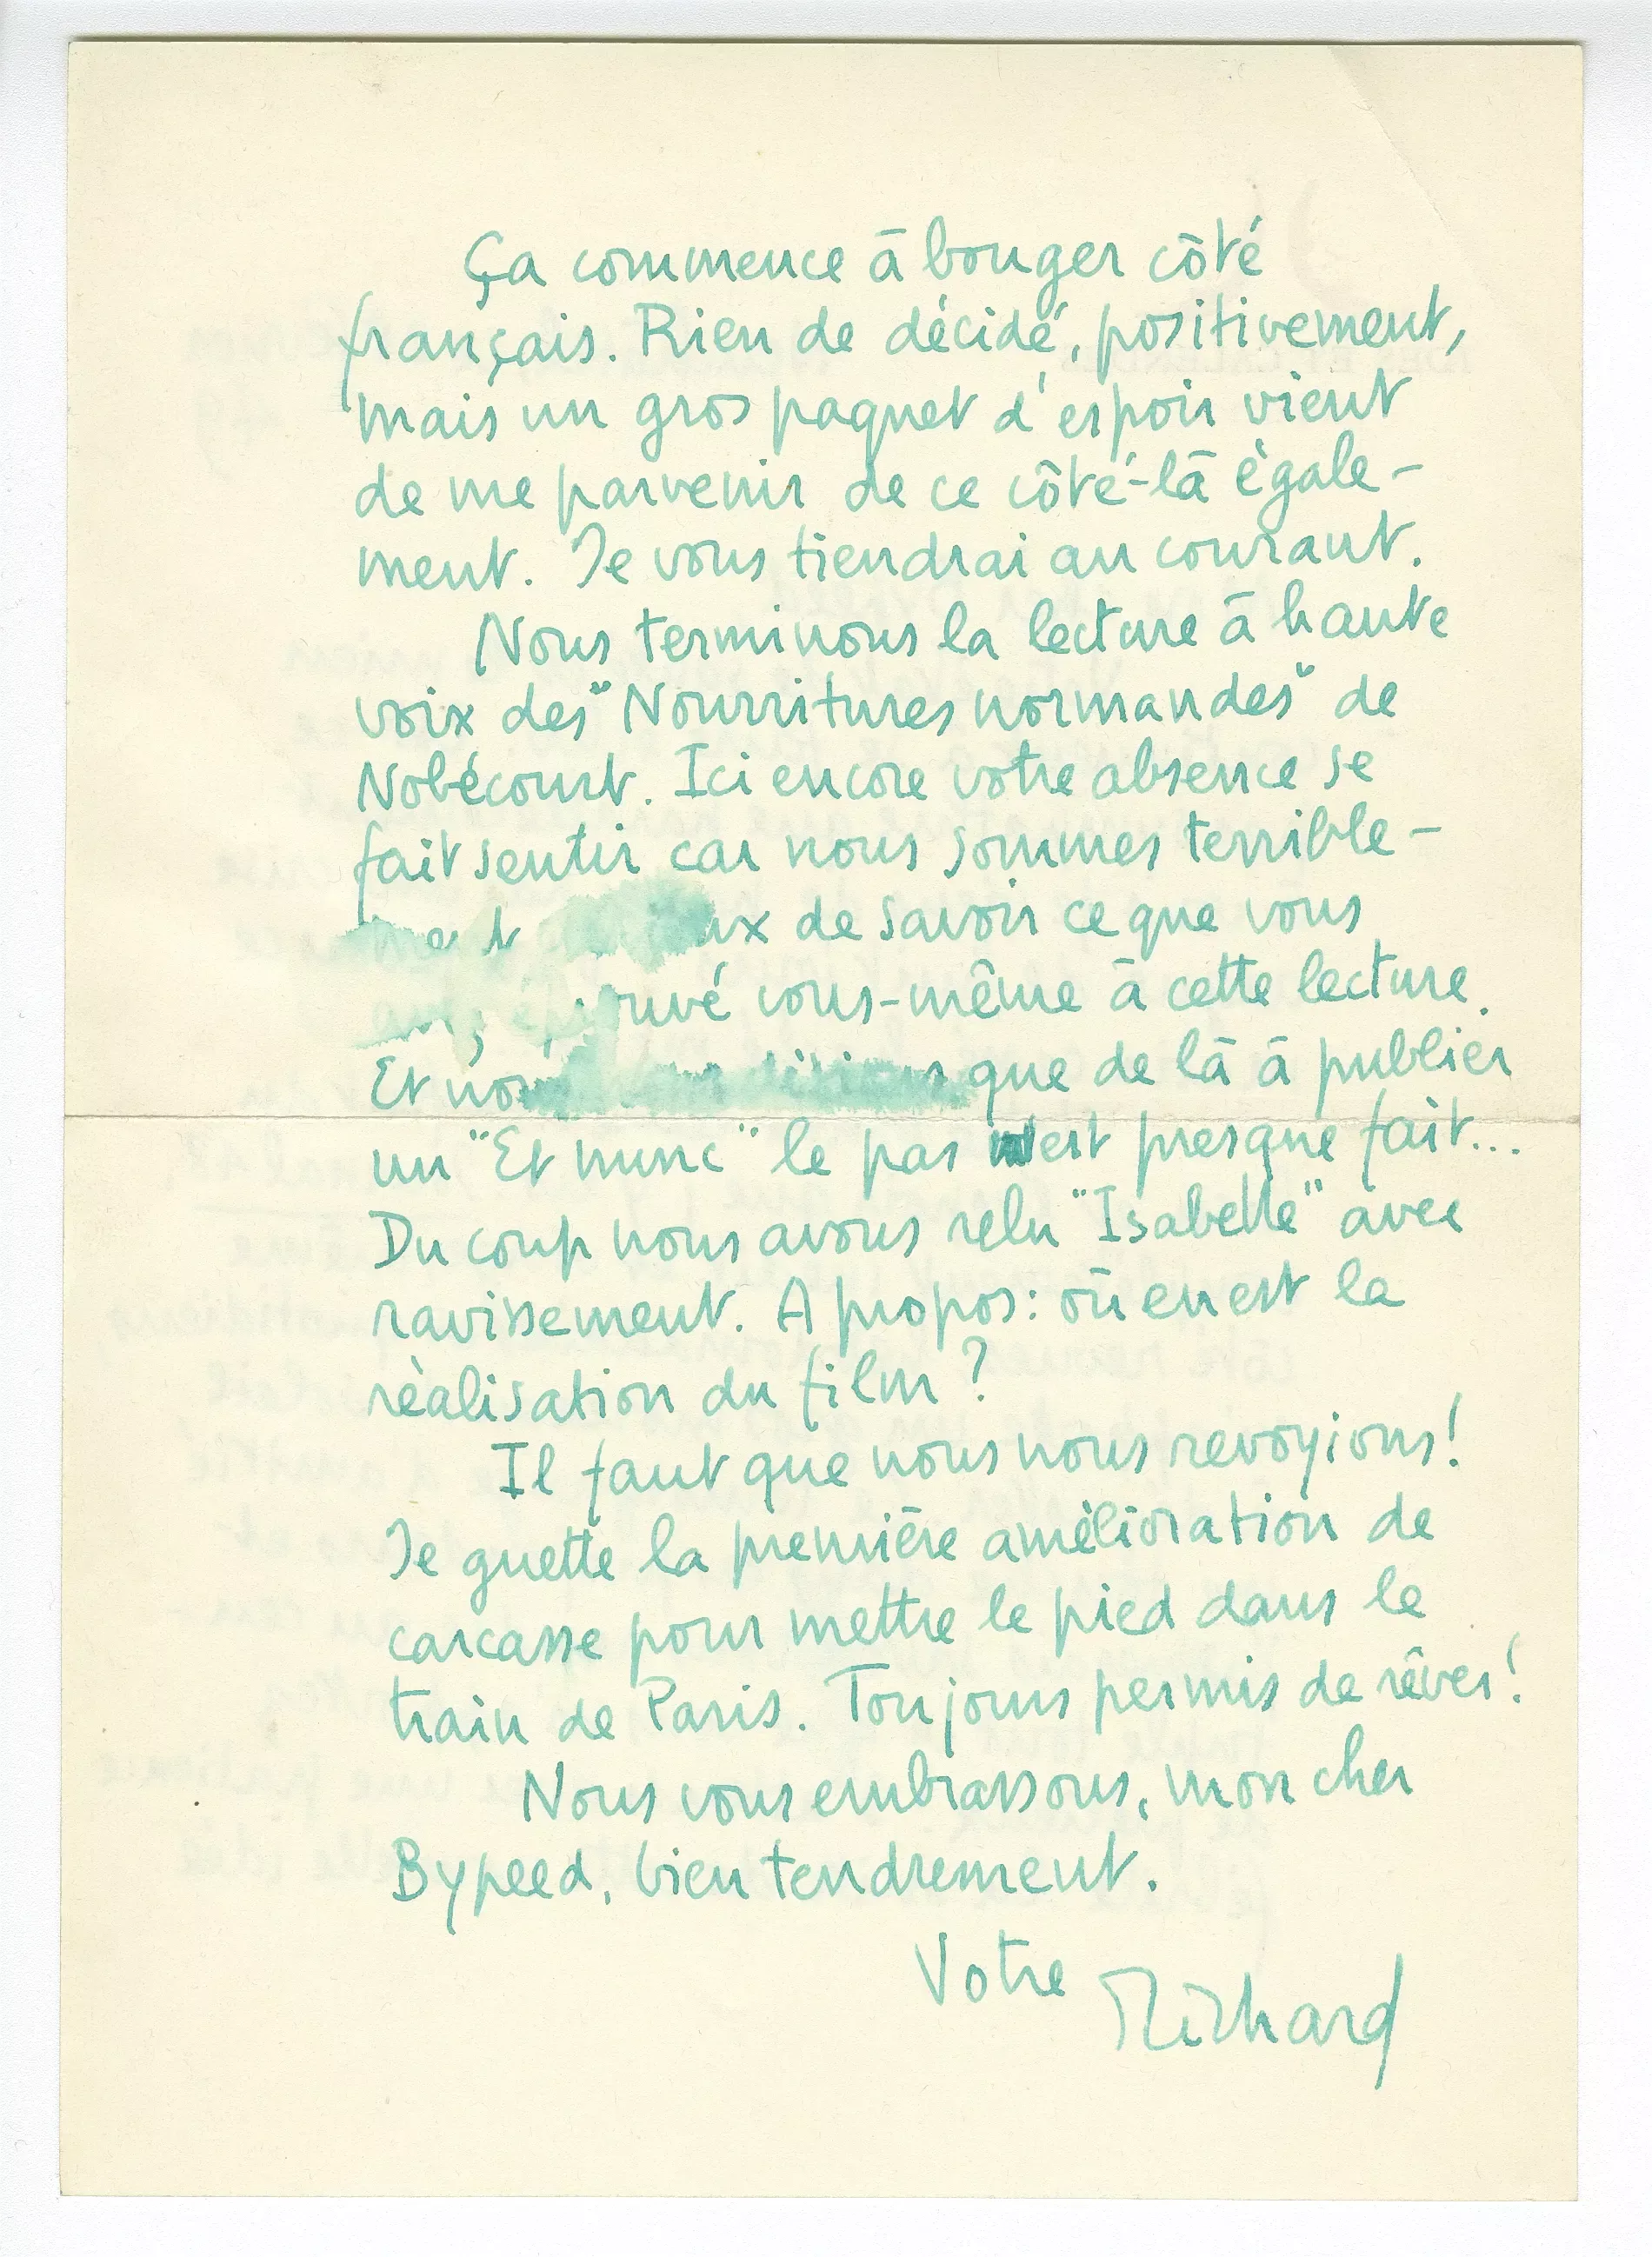 Ça commence à bouger côté
français. Rien de décidé, positivement,
mais un gros paquet d'espoir vient
de me parvenir de ce côté-là égale-
ment. Je vous tiendrai au courant.
Nous terminons la lecture à haute
voix des "Nourritures normandes" de
Nobécourt. Ici encore votre absence se
fait sentir car nous sommes terrible-
ment de savoir ce que vous
vous-même à cette lecture.
Et nous que de là à publier
un "Et nunc" le pas est presque fait...
Du coup nous avons relu "Isabelle" avec
ravissement. A propos: où en est la
réalisation du film?
Il faut que nous nous revoyions!
Je guette la première amélioration de
carcasse pour mettre le pied dans le
train de Paris. Toujours permis de rêver!
Nous vous embrassons, mon cher
Bypeed, bien tendrement.
Votre Richard